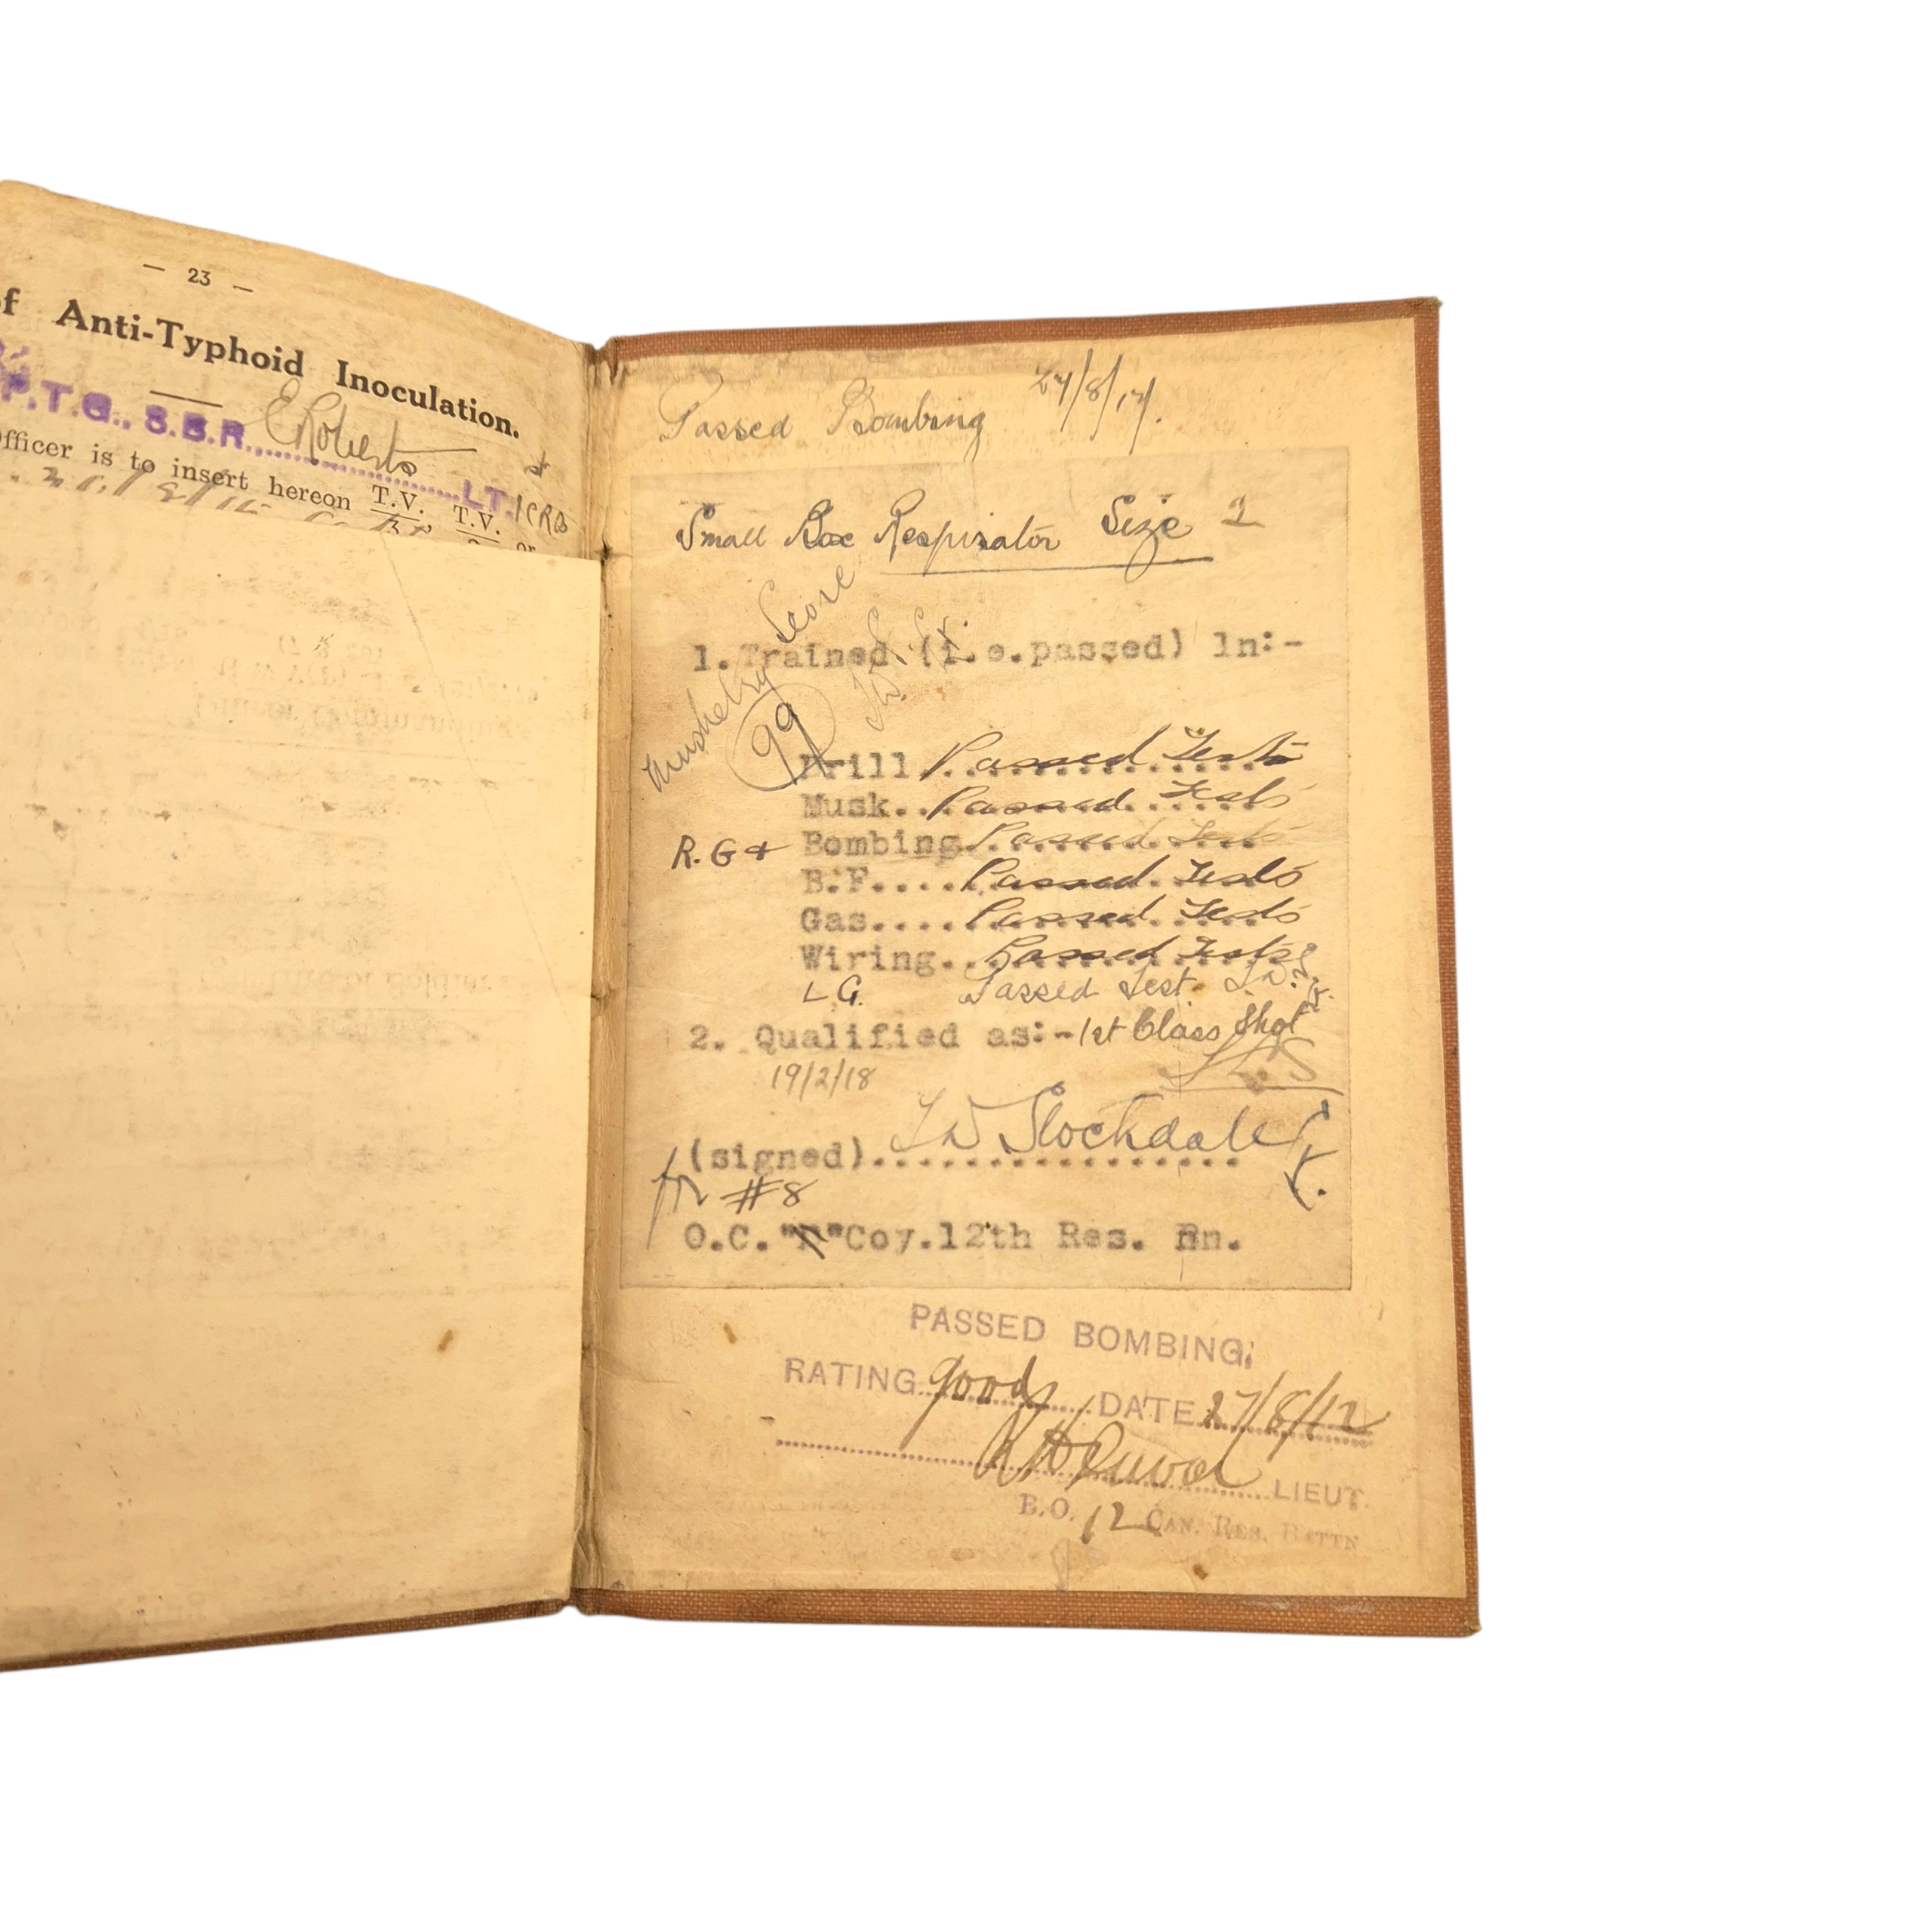 — 23 —
of Anti-Typhoid Inoculation.
P.T.G., S.B.R. E Roberts LT. 1CRB
Officer is to insert hereon T.V. T.V. or
Passed Bombing 27/8/17.
Small Box Respirator Size 2
Musketry Score
99
1. Trained (i.e.passed) in:-
Drill Passed Tests
Musk.. Passed Tests
R.G + Bombing Passed Tests
B.F.... Passed Tests
Gas.... Passed Tests
Wiring.. Passed Tests
L G. Passed Test.
2. Qualified as:- 1st Class Shot
19/2/18
(signed) Stockdale Lt.
for #8
O.C." "Coy.12th Res. Bn.
PASSED BOMBING:
RATING good DATE 27/8/17
LIEUT.
B.O. 12 CAN. RES. BATTN